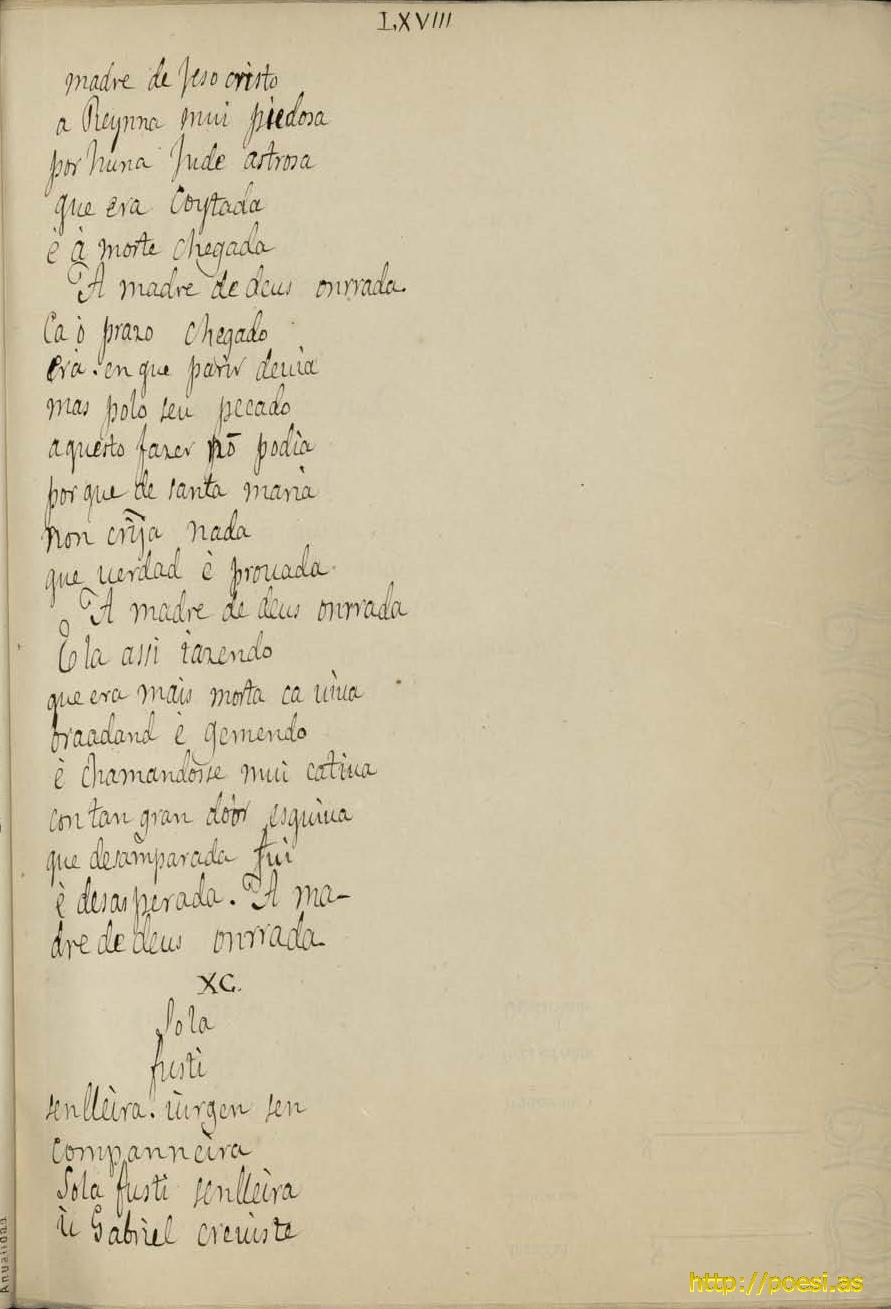 LXVIII
madre de Jeso cristo
a Reynna mui piedosa
por huna Jude astrosa
que era Coytada
è à morte chegada
A madre de deus onrrada.
Ca ò prazo chegado
era. en que parir deuìa
mas polo seu pecado
aquesto fazer nō podìa
por que de santa marìa
non crij̃a nada
que uerdad è prouada.
A madre de deus onrrada
E la assi iazendo
que era mais morta ca uìua
braadand è gemendo
è chamandosse mui catiua
con tan gran door esquiua
que desamparada fui
è desasperada. A ma-
dre de deus onrrada
XC.
Sola
fusti
senlleìra. uirgen sen
companneìra
Sola fusti senlleìra
ù Gabriel creuiste
Anualidad
http://poesi.as